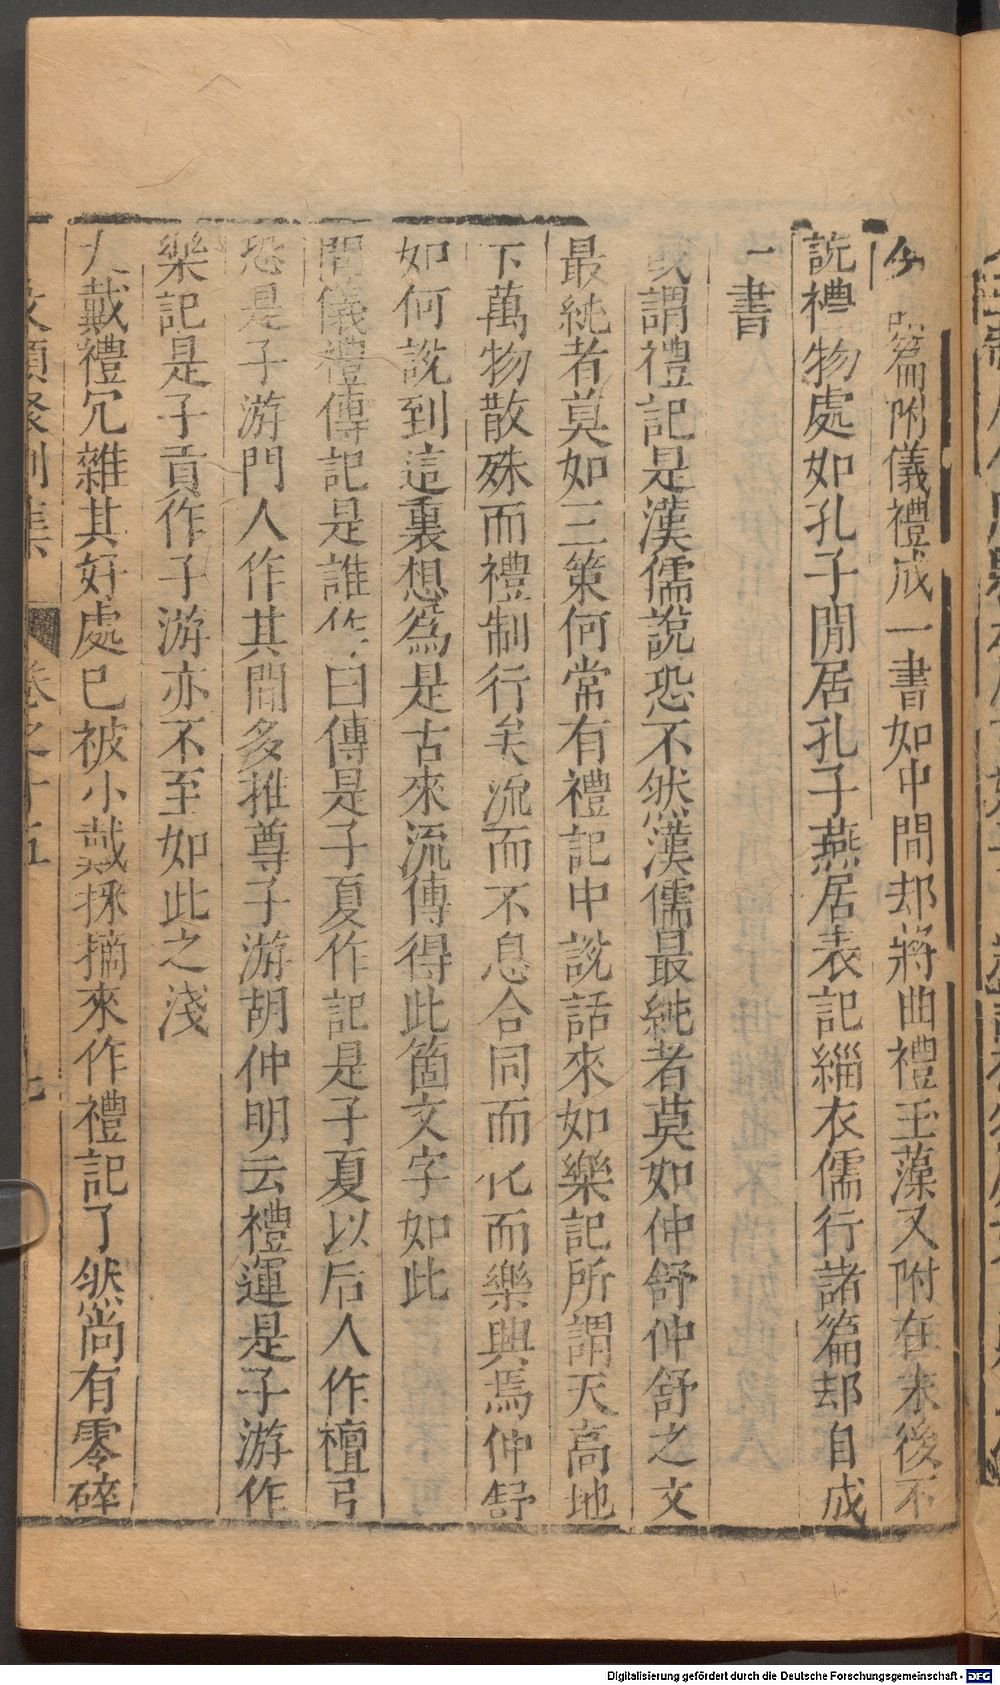 分 篇附儀禮成一書如中間却將曲禮玉藻又附在末後不
說禮物處如孔子閒居孔子燕居表記緇衣儒行諸篇却自成
一書
或謂禮記是漢儒說恐不然漢儒最純者莫如仲舒仲舒之文
最純者莫如三策何常有禮記中說話來如樂記所謂天高地
下萬物散殊而禮制行矣流而不息合同而化而樂興焉仲舒
如何說到這裏想爲是古來流傳得此箇文字如此
問儀禮傳記是誰作曰傳是子夏作記是子夏以后人作檀弓
恐是子游門人作其間多推尊子游胡仲明云禮運是子游作
樂記是子貢作子游亦不至如此之淺
大戴禮冗雜其好處已被小戴採摘來作禮記了然尚有零碎
文類聚別集 卷之十五
Digitalisierung gefördert durch die Deutsche Forschungsgemeinschaft - DFG